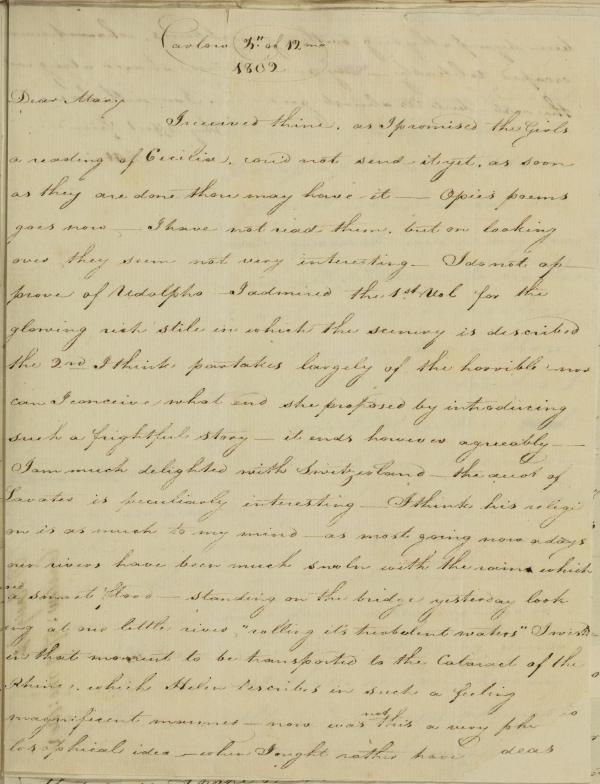 Carlow 4th of 12 mo
1802
Dear Mary
I received thine, as I promised the Girls
a reading of Cecilia, cou'd not send it yet, as soon
as they are done thou may have it — Opies poems
goes now — I have not read them, but on looking
over they seem not very interesting — I do not ap-
prove of Udolpho I admired the 1st Vol for the
glowing rich stile in which the scenery is described
the 2nd I think partakes largely of the horrible nor
can I conceive what end she proposed by introducing
such a frightful story — it ends however agreeably —
I am much delighted with Switzerland — the acct of
Lavater is peculiarly interesting — I think his religi
on is as much to my mind — as most going now a days
our rivers have been much swoln with the rains which
a smart flood — standing on the bridge yesterday look
ing at our little river, "rolling it's turbulent waters" I wish'd
in that moment to be transported to the Cataract of the
Rhine, which Helen describes in such a feeling
magnificent manner — now was not this a very phi
losophical idea — when I ought rather have dear